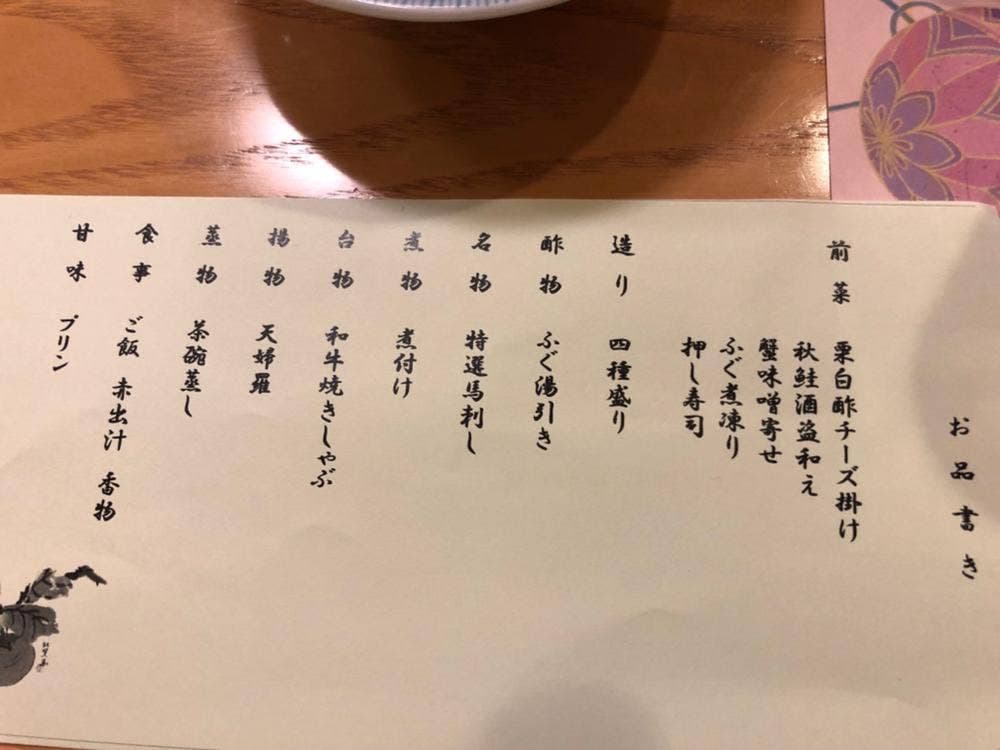 お品書き
前菜 栗白酢チーズ掛け
秋鮭酒盗和え
蟹味噌寄せ
ふぐ煮凍り
押し寿司
造り 四種盛り
酢物 ふぐ湯引き
名物 特選馬刺し
煮物 煮付け
台物 和牛焼きしゃぶ
揚物 天婦羅
蒸物 茶碗蒸し
食事 ご飯 赤出汁 香物
甘味 プリン